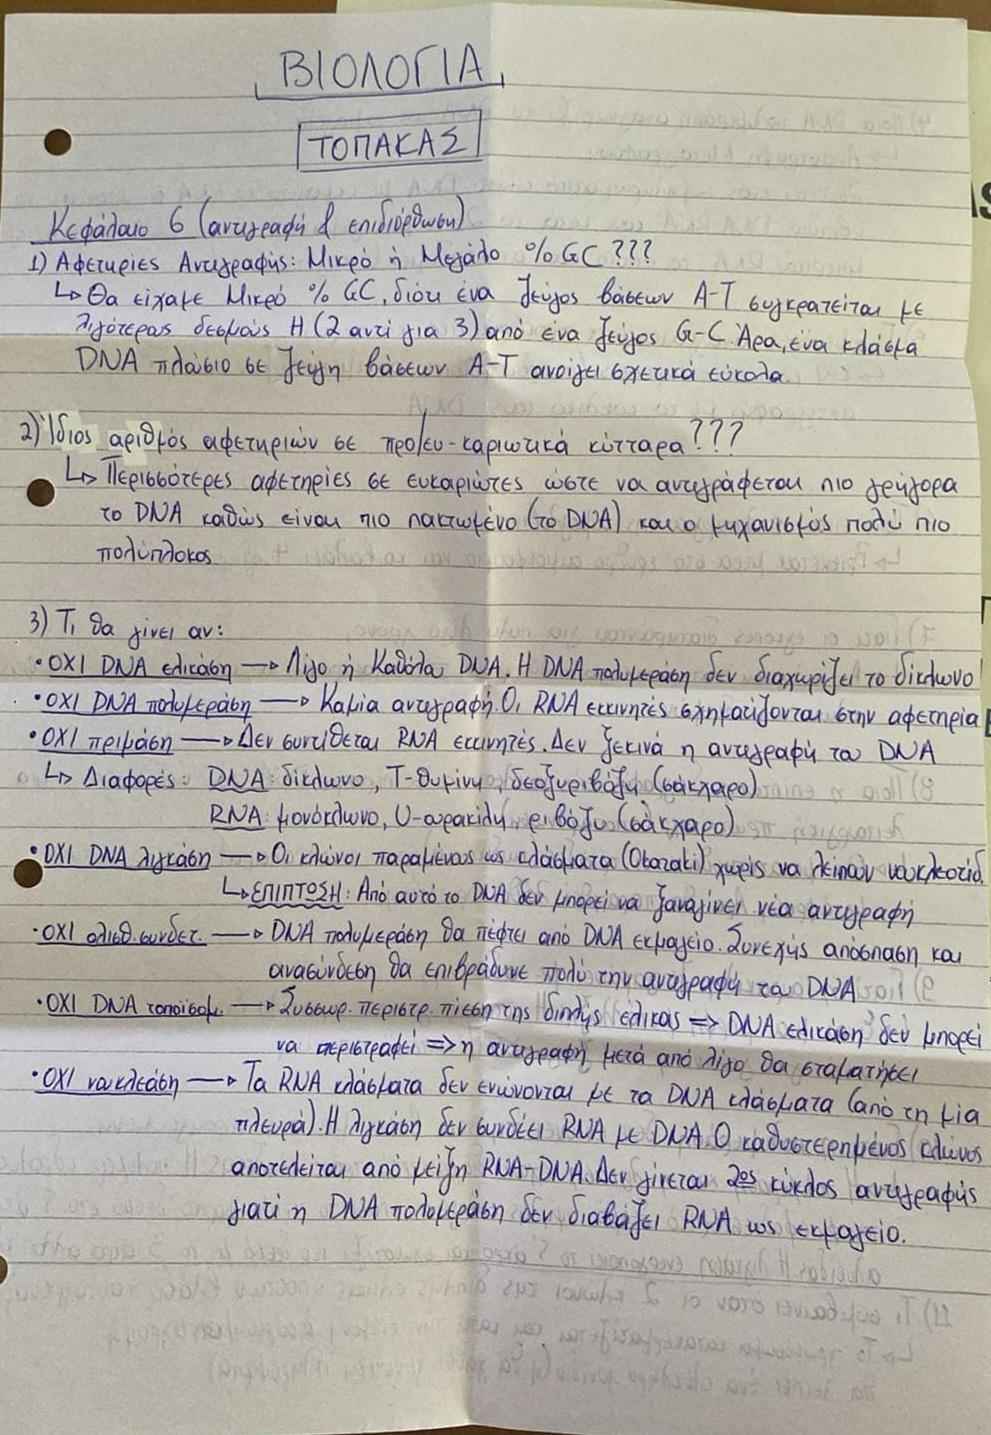 ΒΙΟΛΟΓΙΑ
ΤΟΠΑΚΑΣ
Κεφάλαιο 6 (αντιγραφή & επιδιόρθωση)
1) Αφετηρίες Αντιγραφής: Μικρό ή Μεγάλο % GC???
↳ Θα είχαμε Μικρό % GC, διότι ένα ζεύγος βάσεων Α-Τ συγκρατείται με
λιγότερους δεσμούς Η (2 αντί για 3) από ένα ζεύγος G-C. Άρα, ένα κλάσμα
DNA πλούσιο σε ζεύγη βάσεων Α-Τ ανοίγει σχετικά εύκολα.
2) Ίδιος αριθμός αφετηριών σε προ/ευ-καριωτικά κύτταρα???
↳ Περισσότερες αφετηρίες σε ευκαριώτες ώστε να αντιγράφεται πιο γρήγορα
το DNA καθώς είναι πιο πακτωμένο (το DNA) και ο μηχανισμός πολύ πιο
πολύπλοκος
3) Τι θα γίνει αν:
• ΟΧΙ DNA ελικάση → Λίγο ή Καθόλου DNA. Η DNA πολυμεράση δεν διαχωρίζει το δίκλωνο
• ΟΧΙ DNA πολυμεράση → Καμία αντιγραφή. Οι RNA εκκινητές σχηματίζονται στην αφετηρία
• ΟΧΙ πριμάση → Δεν συντίθεται RNA εκκινητές. Δεν ξεκινά η αντιγραφή του DNA
↳ Διαφορές: DNA: δίκλωνο, Τ-θυμίνη, δεοξυριβόζη (σάκχαρο)
RNA: μονόκλωνο, U-ουρακίλη, ριβόζη (σάκχαρο)
• ΟΧΙ DNA λιγκάση → Οι κλώνοι παραμένους ως κλάσματα (Okazaki) χωρίς να λείπουν νουκλεοτίδ.
↳ ΕΠΙΠΤΩΣΗ: Από αυτό το DNA δεν μπορεί να ξαναγίνει νέα αντιγραφή
• ΟΧΙ ολισθ. συνδετ. → DNA πολυμεράση θα πέφτει από DNA εκμαγείο. Συνεχής απόσπαση και
ανασύνδεση θα επιβράδυνε πολύ την αντιγραφή του DNA
• ΟΧΙ DNA τοποϊσομ. → Συσσωρ. περιστρ. πίεση της διπλής έλικας ⇒ DNA ελικάση δεν μπορεί
να περιστραφεί ⇒ η αντιγραφή μετά από λίγο θα σταματήσει
• ΟΧΙ νουκλεάση → Τα RNA κλάσματα δεν ενώνονται με τα DNA κλάσματα (από τη μία
πλευρά). Η λιγκάση δεν συνδέει RNA με DNA. Ο καθυστερημένος κλώνος
αποτελείται από μείξη RNA-DNA. Δεν γίνεται 2ος κύκλος αντιγραφής
γιατί η DNA πολυμεράση δεν διαβάζει RNA ως εκμαγείο.